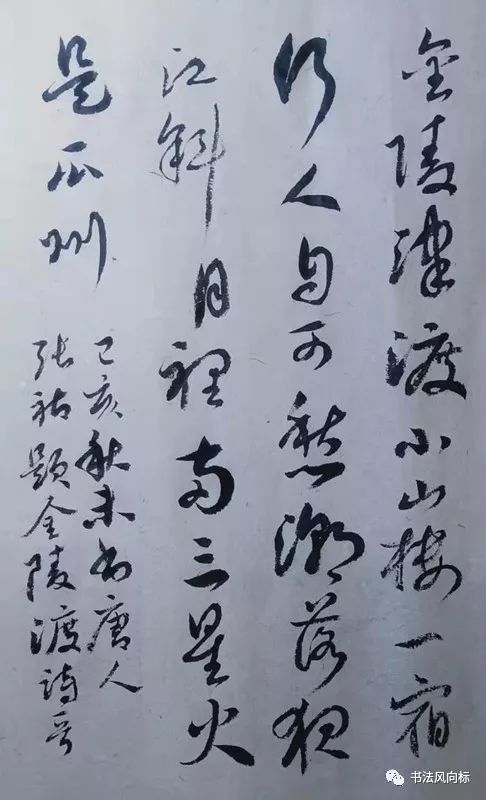 金陵津渡小山楼一宿
行人自可愁潮落夜
江斜月裡两三星火
是瓜州
己亥秋末书唐人
张祜题金陵渡诗
书法风向标